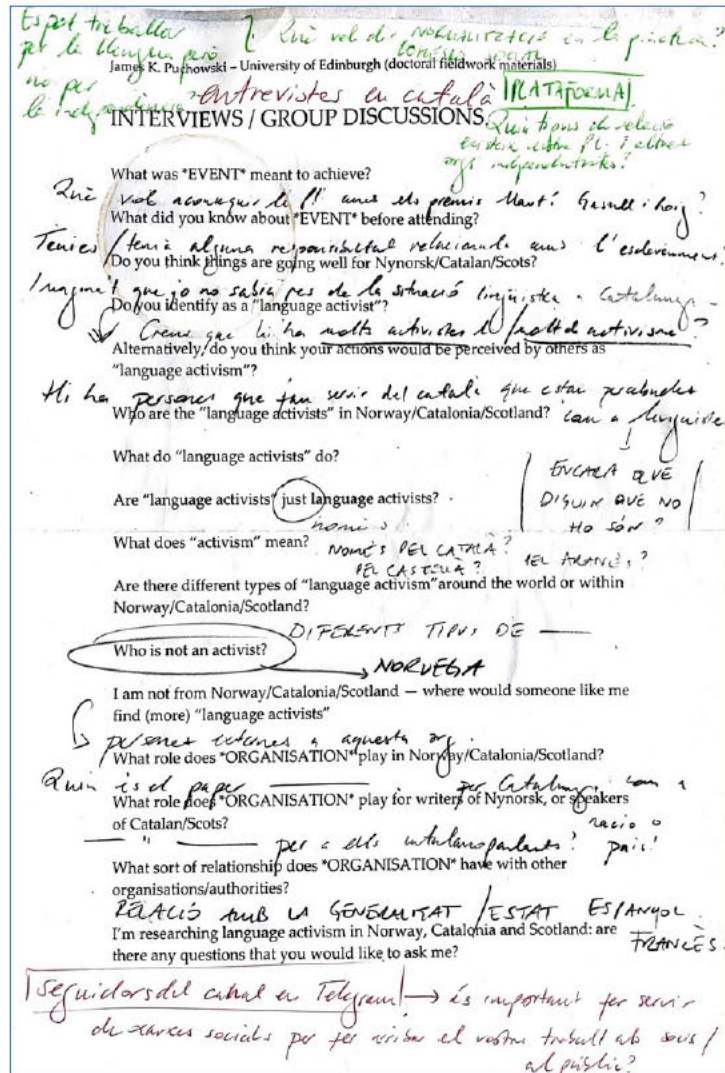 Es pot treballar
per la llengua però
no per
la independència
Què vol dir NORMALITZACIÓ en la pràctica?
James K. Puchowski – University of Edinburgh (doctoral fieldwork materials)
entrevistes en català
PLATAFORMA
INTERVIEWS / GROUP DISCUSSIONS
Quin tipus de relació
existeix entre PL i altres
orgs independentistes?
What was *EVENT* meant to achieve?
Què vol aconseguir la amb els premis Martí Gasull i Roig?
What did you know about *EVENT* before attending?
Tenies / tenia alguna responsabilitat relacionada amb l'esdeveniment?
Do you think things are going well for Nynorsk/Catalan/Scots?
Imagina't que jo no sabia res de la situació lingüística a Catalunya -
Do you identify as a "language activist"?
Creus que hi ha molts activistes / molt d'activisme?
Alternatively, do you think your actions would be perceived by others as
"language activism"?
Hi ha persones que fan servir del català que estan percebudes
Who are the "language activists" in Norway/Catalonia/Scotland?
com a lingüista
What do "language activists" do?
ENCARA QUE
DIGUIN QUE NO
HO SÓN?
Are "language activists" just language activists?
només
What does "activism" mean?
NOMÉS PEL CATALÀ?
PEL CASTELLÀ? PEL ARANÈS?
Are there different types of "language activism" around the world or within
Norway/Catalonia/Scotland?
DIFERENTS TIPUS DE —
Who is not an activist?
NORUEGA
I am not from Norway/Catalonia/Scotland — where would someone like me
find (more) "language activists"
persones externes a aquesta org.
What role does *ORGANISATION* play in Norway/Catalonia/Scotland?
Quin és el paper — per Catalunya com a
nació o
país?
What role does *ORGANISATION* play for writers of Nynorsk, or speakers
of Catalan/Scots?
— " — per a els catalanoparlants?
What sort of relationship does *ORGANISATION* have with other
organisations/authorities?
RELACIÓ AMB LA GENERALITAT / ESTAT ESPANYOL
FRANCÈS
I'm researching language activism in Norway, Catalonia and Scotland: are
there any questions that you would like to ask me?
Seguidors del canal en Telegram → és important fer servir
de xarxes socials per fer arribar el vostre treball als socis /
al públic?